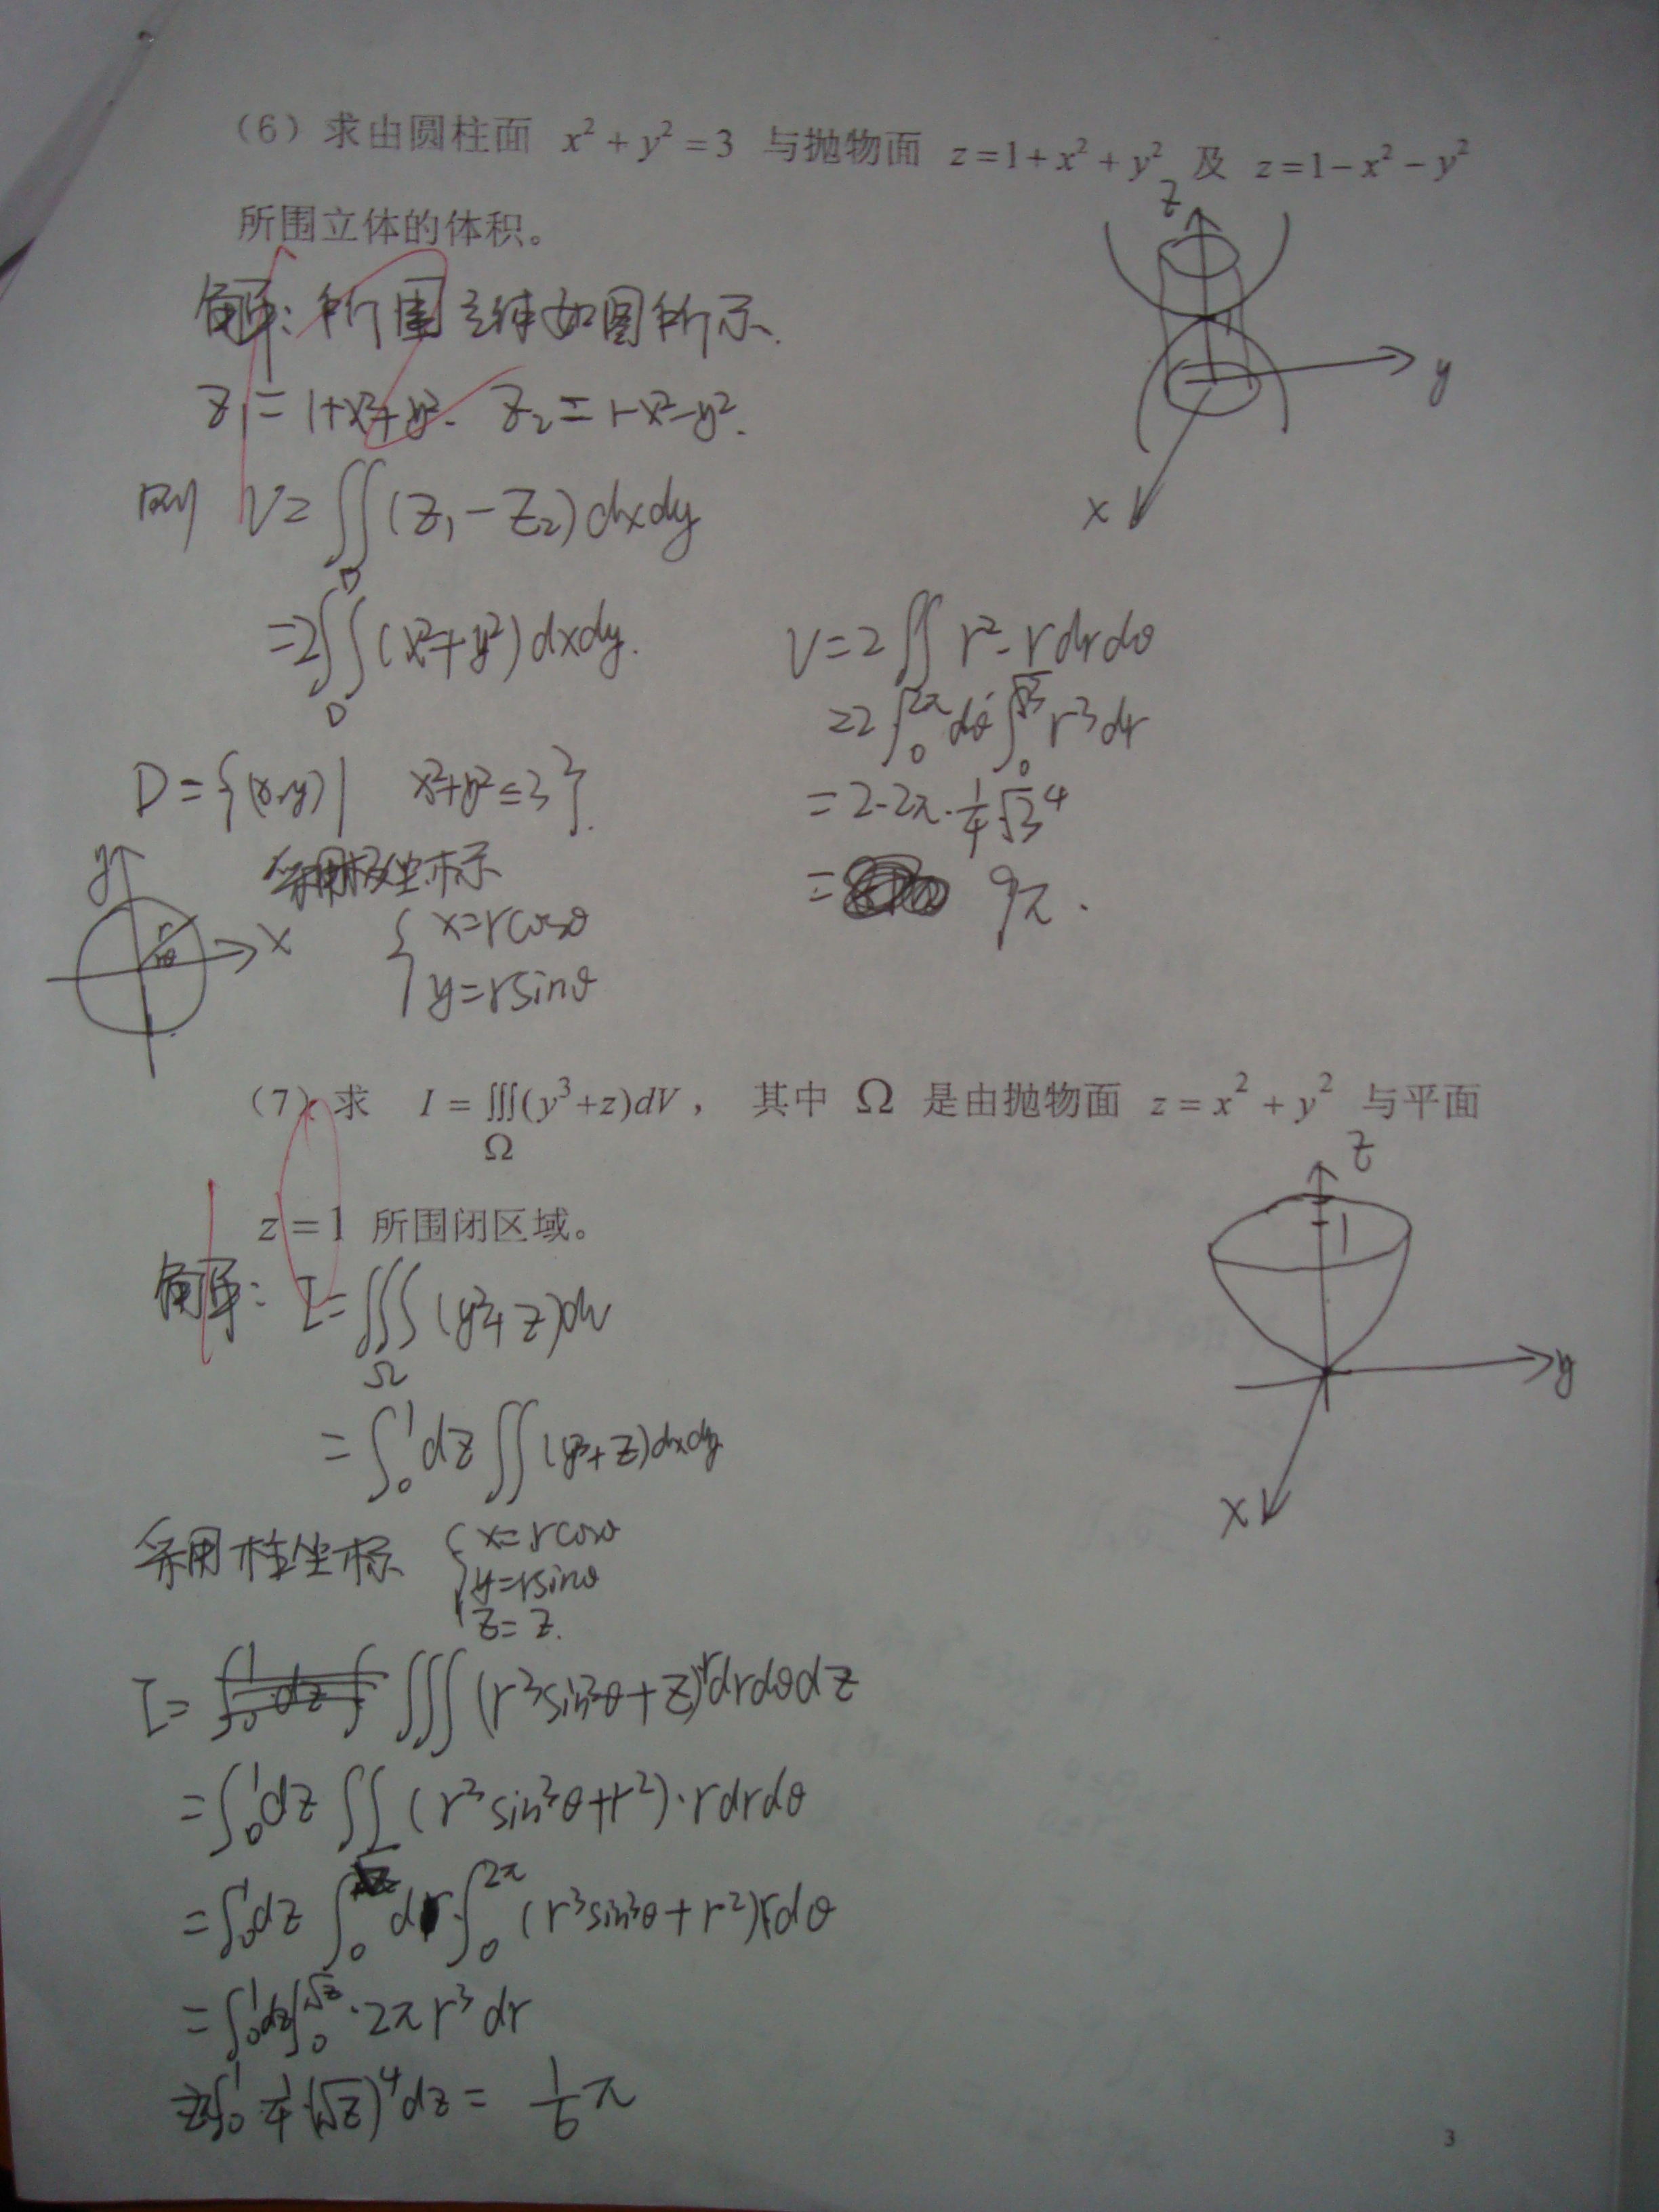 (6) 求由圆柱面 x² + y² = 3 与抛物面 z = 1 + x² + y² 及 z = 1 − x² − y²
所围立体的体积。
z
y
x
解: 所围立体如图所示.
z₁ = 1+x²+y². z₂ = 1-x²-y².
则 V = ∬_D (z₁ - z₂) dxdy
= 2∬_D (x²+y²) dxdy.
D = {(x,y) | x²+y² ≤ 3}.
y
x
r
θ
采用极坐标
{ x = rcosθ
y = rsinθ
V = 2∬ r²·r drdθ
= 2∫₀^{2π} dθ ∫₀^{√3} r³ dr
= 2·2π·1/4 √3⁴
= 9π.
(7) 求 I = ∭_Ω (y³+z)dV , 其中 Ω 是由抛物面 z = x² + y² 与平面
z = 1 所围闭区域。
z
1
y
x
解: I = ∭_Ω (y³+z)dv
= ∫₀¹ dz ∬ (y³+z) dxdy
采用柱坐标 { x = rcosθ
y = rsinθ
z = z.
I = ∭ (r³sin³θ + z) r drdθdz
= ∫₀¹ dz ∬ (r³sin³θ + r²)·r drdθ
= ∫₀¹ dz ∫₀^{√z} dr·∫₀^{2π} (r³sin³θ + r²) r dθ
= ∫₀¹ dz ∫₀^{√z}·2π r³ dr
∫₀¹ 1/4·(√z)⁴ dz = 1/6 π
3